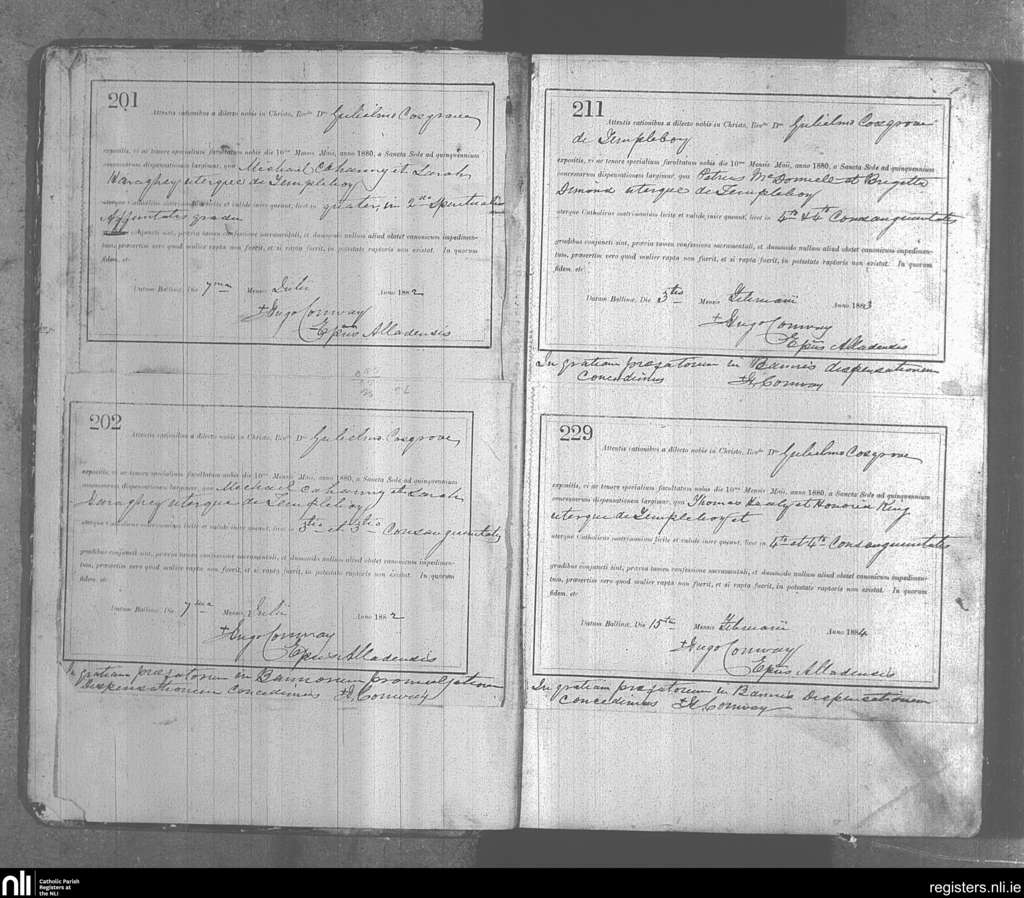 201
Attentis rationibus a dilecto nobis in Christo, Revdo Dno Gulielmo Cosgrave
expositis, vi ac tenore specialium facultatum nobis die 10ma Mensis Maii, anno 1880, a Sancta Sede ad quinquennium
concessarum dispensationem largimur, qua Michael Cahanny et Sarah
Haraghey uterque de Templeboy
uterque Catholicus matrimonium licite et valide inire queant, licet in quater, in 2do Spiritualis
Affinitatis gradu
conjuncti sint, prævia tamen confessione sacramentali, et dummodo nullum aliud obstet canonicum impedimen-
tum, præsertim vero quod mulier rapta non fuerit, et si rapta fuerit, in potestate raptoris non existat. In quorum
fidem, etc
Datum Ballinæ, Die 7ma Mensis Julii Anno 1882
+ Hugo Conway
Epus Alladensis
202
Attentis rationibus a dilecto nobis in Christo, Revdo Dno Gulielmo Cosgrove
expositis, vi ac tenore specialium facultatum nobis die 10ma Mensis Maii, anno 1880, a Sancta Sede ad quinquennium
concessarum dispensationem largimur, qua Michael Cahanny et Sarah
Haraghey uterque de Templeboy
uterque Catholicus matrimonium licite et valide inire queant, licet in 3tio et 3tio Consanguinitatis
gradibus conjuncti sint, prævia tamen confessione sacramentali, et dummodo nullum aliud obstet canonicum impedimen-
tum, præsertim vero quod mulier rapta non fuerit, et si rapta fuerit, in potestate raptoris non existat. In quorum
fidem, etc
Datum Ballinæ, Die 7ma Mensis Julii Anno 1882
+ Hugo Conway
Epus Alladensis
In gratiam præfatorum in Bannorum promulgatione
Dispensationem concedimus + H. Conway
211
Attentis rationibus a dilecto nobis in Christo, Revdo Dno Gulielmo Cosgrove
de Templeboy
expositis, vi ac tenore specialium facultatum nobis die 10ma Mensis Maii, anno 1880, a Sancta Sede ad quinquennium
concessarum dispensationem largimur, qua Petrus McDonnell et Brigitta
Dimond uterque de Templeboy
uterque Catholicus matrimonium licite et valide inire queant, licet in 4to & 4to Consanguinitatis
gradibus conjuncti sint, prævia tamen confessione sacramentali, et dummodo nullum aliud obstet canonicum impedimen-
tum, præsertim vero quod mulier rapta non fuerit, et si rapta fuerit, in potestate raptoris non existat. In quorum
fidem, etc
Datum Ballinæ, Die 3tio Mensis Februarii Anno 1883
+ Hugo Conway
Epus Alladensis
In gratiam præfatorum in Bannis dispensationem
concedimus + H. Conway
229
Attentis rationibus a dilecto nobis in Christo, Revdo Dno Gulielmo Cosgrove
expositis, vi ac tenore specialium facultatum nobis die 10ma Mensis Maii, anno 1880, a Sancta Sede ad quinquennium
concessarum dispensationem largimur, qua Thomas Healy et Honoria King
uterque de Templeboy et
uterque Catholicus matrimonium licite et valide inire queant, licet in 4to et 4to Consanguinitatis
gradibus conjuncti sint, prævia tamen confessione sacramentali, et dummodo nullum aliud obstet canonicum impedimen-
tum, præsertim vero quod mulier rapta non fuerit, et si rapta fuerit, in potestate raptoris non existat. In quorum
fidem, etc
Datum Ballinæ, Die 15ta Mensis Februarii Anno 1884
+ Hugo Conway
Epus Alladensis
In gratiam præfatorum in Bannis Dispensationem
concedimus + H. Conway
nli Catholic Parish
Registers at
the NLI
registers.nli.ie